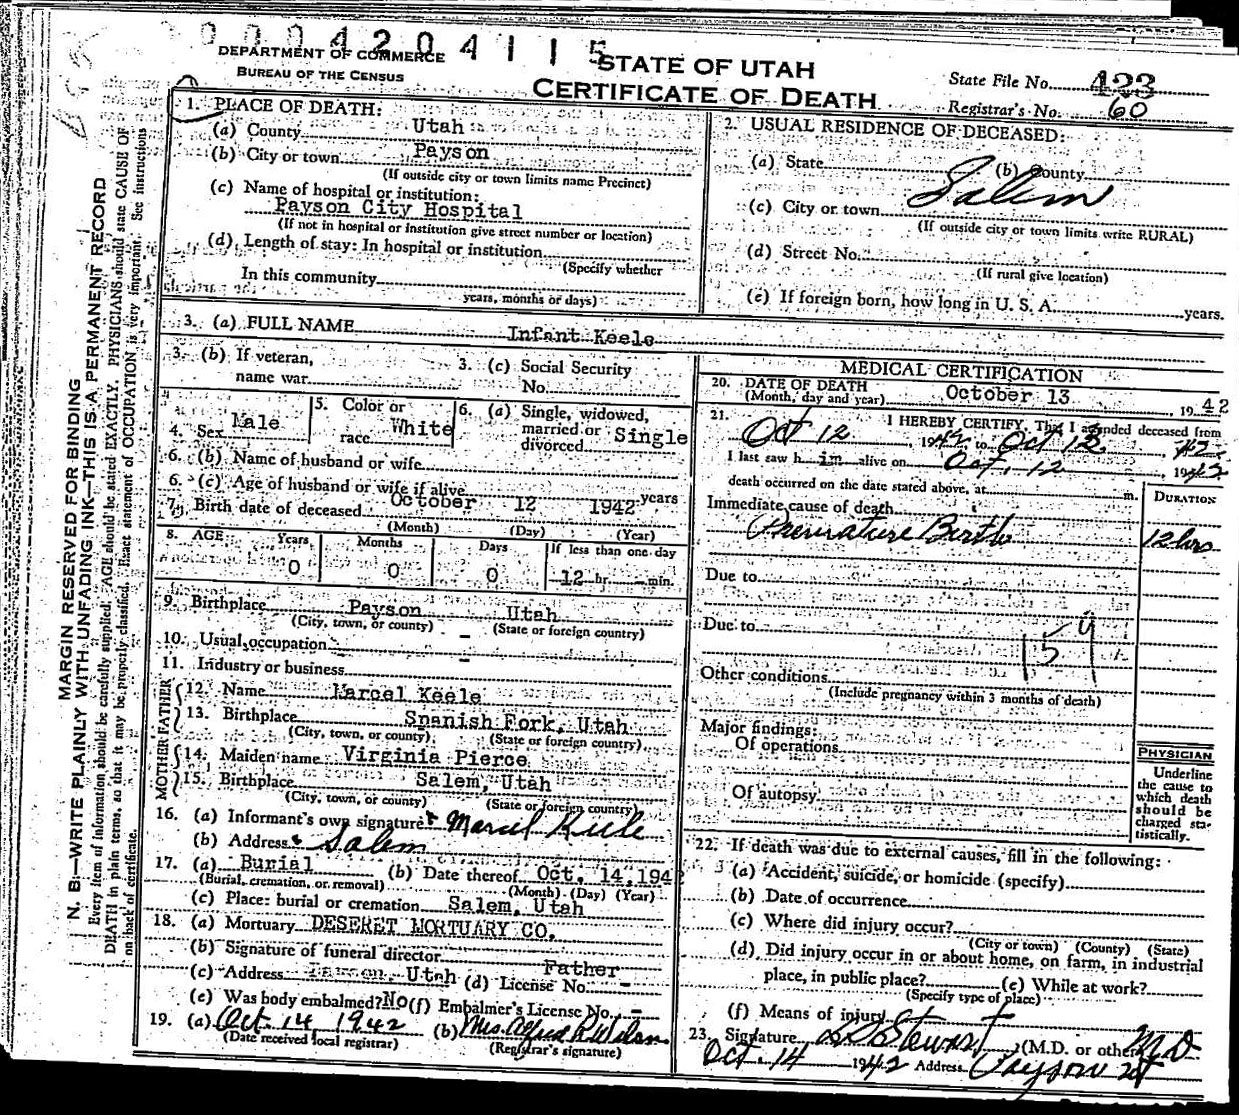 0004204115
DEPARTMENT OF COMMERCE
BUREAU OF THE CENSUS
STATE OF UTAH
CERTIFICATE OF DEATH
State File No. 423
Registrar's No. 60
MARGIN RESERVED FOR BINDING
N. B.—WRITE PLAINLY WITH UNFADING INK—THIS IS A PERMANENT RECORD
Every item of information should be carefully supplied. AGE should be stated EXACTLY. PHYSICIANS should state CAUSE OF
DEATH in plain terms, so that it may be properly classified. Exact statement of OCCUPATION is very important. See instructions
on back of certificate.
1. PLACE OF DEATH:
(a) County Utah
(b) City or town Payson
(If outside city or town limits name Precinct)
(c) Name of hospital or institution:
Payson City Hospital
(If not in hospital or institution give street number or location)
(d) Length of stay: In hospital or institution
(Specify whether
In this community
years, months or days)
2. USUAL RESIDENCE OF DECEASED:
(a) State (b) County
(c) City or town Salem
(If outside city or town limits write RURAL)
(d) Street No.
(If rural give location)
(e) If foreign born, how long in U. S. A. years.
3. (a) FULL NAME Infant Keele
3. (b) If veteran,
name war
3. (c) Social Security
No.
4. Sex Male
5. Color or
race White
6. (a) Single, widowed,
married or
divorced Single
6. (b) Name of husband or wife
6. (c) Age of husband or wife if alive years
7. Birth date of deceased October 12 1942
(Month) (Day) (Year)
8. AGE Years Months Days If less than one day
0 0 0 12 hr. — min.
9. Birthplace Payson Utah
(City, town, or county) (State or foreign country)
10. Usual occupation -
11. Industry or business -
FATHER
12. Name Marcel Keele
13. Birthplace Spanish Fork, Utah
(City, town, or county) (State or foreign country)
MOTHER
14. Maiden name Virginia Pierce
15. Birthplace Salem, Utah
(City, town, or county) (State or foreign country)
16. (a) Informant's own signature Marcel Keele
(b) Address Salem
17. (a) Burial (b) Date thereof Oct. 14, 1942
(Burial, cremation, or removal) (Month) (Day) (Year)
(c) Place: burial or cremation Salem, Utah
18. (a) Mortuary DESERET MORTUARY CO.
(b) Signature of funeral director Father
(c) Address Payson, Utah (d) License No. -
(e) Was body embalmed? No (f) Embalmer's License No. -
19. (a) Oct. 14, 1942 (b) Mrs. Alfred R Wilson
(Date received local registrar) (Registrar's signature)
MEDICAL CERTIFICATION
20. DATE OF DEATH
(Month, day and year) October 13, 1942
21. I HEREBY CERTIFY, That I attended deceased from
Oct 12, 1942 to Oct 13, 42.
I last saw him alive on Oct. 12, 1942
death occurred on the date stated above, at m.
DURATION
Immediate cause of death
Premature Birth 12 hrs
Due to
Due to
159
Other conditions
(Include pregnancy within 3 months of death)
Major findings:
Of operations
Of autopsy
PHYSICIAN
Underline
the cause to
which death
should be
charged sta-
tistically.
22. If death was due to external causes, fill in the following:
(a) Accident, suicide, or homicide (specify)
(b) Date of occurrence
(c) Where did injury occur?
(City or town) (County) (State)
(d) Did injury occur in or about home, on farm, in industrial
place, in public place? (e) While at work?
(Specify type of place)
(f) Means of injury
23. Signature L D Stewart (M.D. or other) M.D
Oct. 14 1942 Address Payson Ut